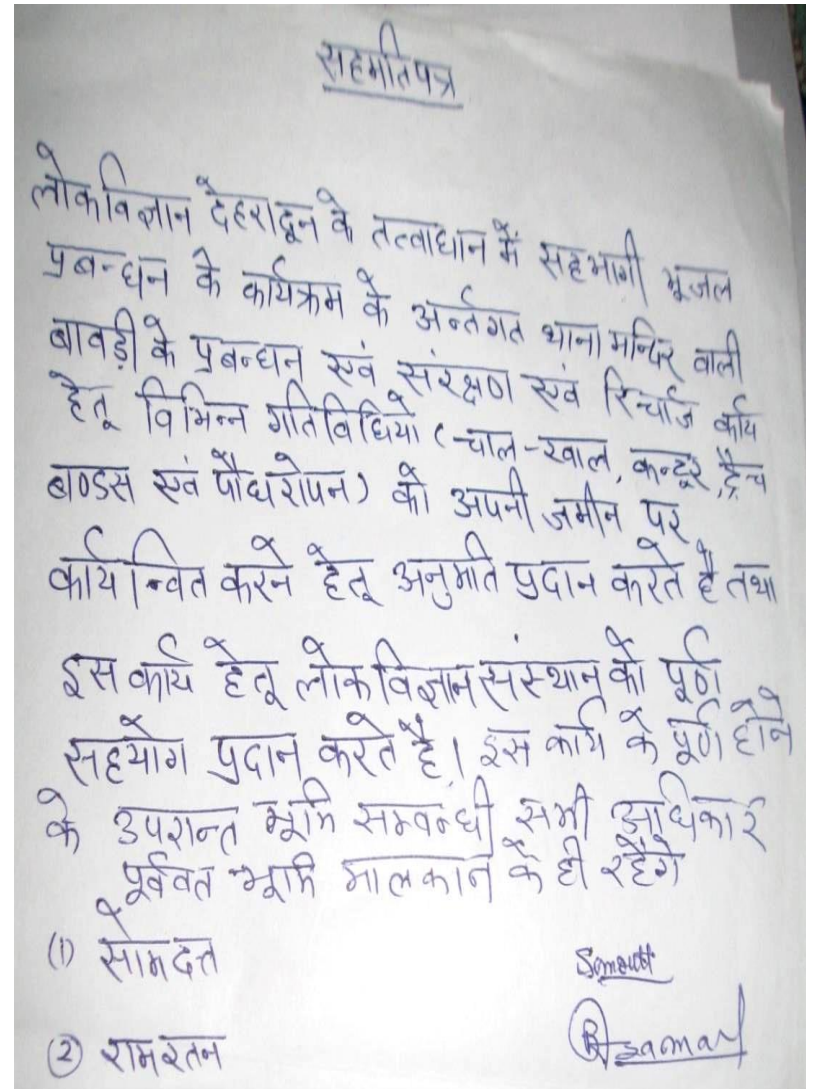 सहमतिपत्र
लोकविज्ञान देहरादून के तत्वाधान में सहभागी भूजल
प्रबन्धन के कार्यक्रम के अर्न्तगत थाना मन्दिर वाली
बावड़ी के प्रबन्धन एवं संरक्षण एवं रिर्चाज कार्य
हेतू विभिन्न गतिविधियो (चाल-खाल, कन्टूर, ट्रेन्च
बण्डस एवं पौधरोपन) को अपनी जमीन पर
कार्यान्वित करने हेतू अनुमति प्रदान करते है तथा
इस कार्य हेतू लोक विज्ञान संस्थान को पूर्ण
सहयोग प्रदान करते है। इस कार्य के पूर्ण होने
के उपरान्त भूमि सम्बन्धी सभी अधिकार
पूर्ववत भूमि मालकान के ही रहेंगे
(1) सोमदत्त
(2) रामरतन